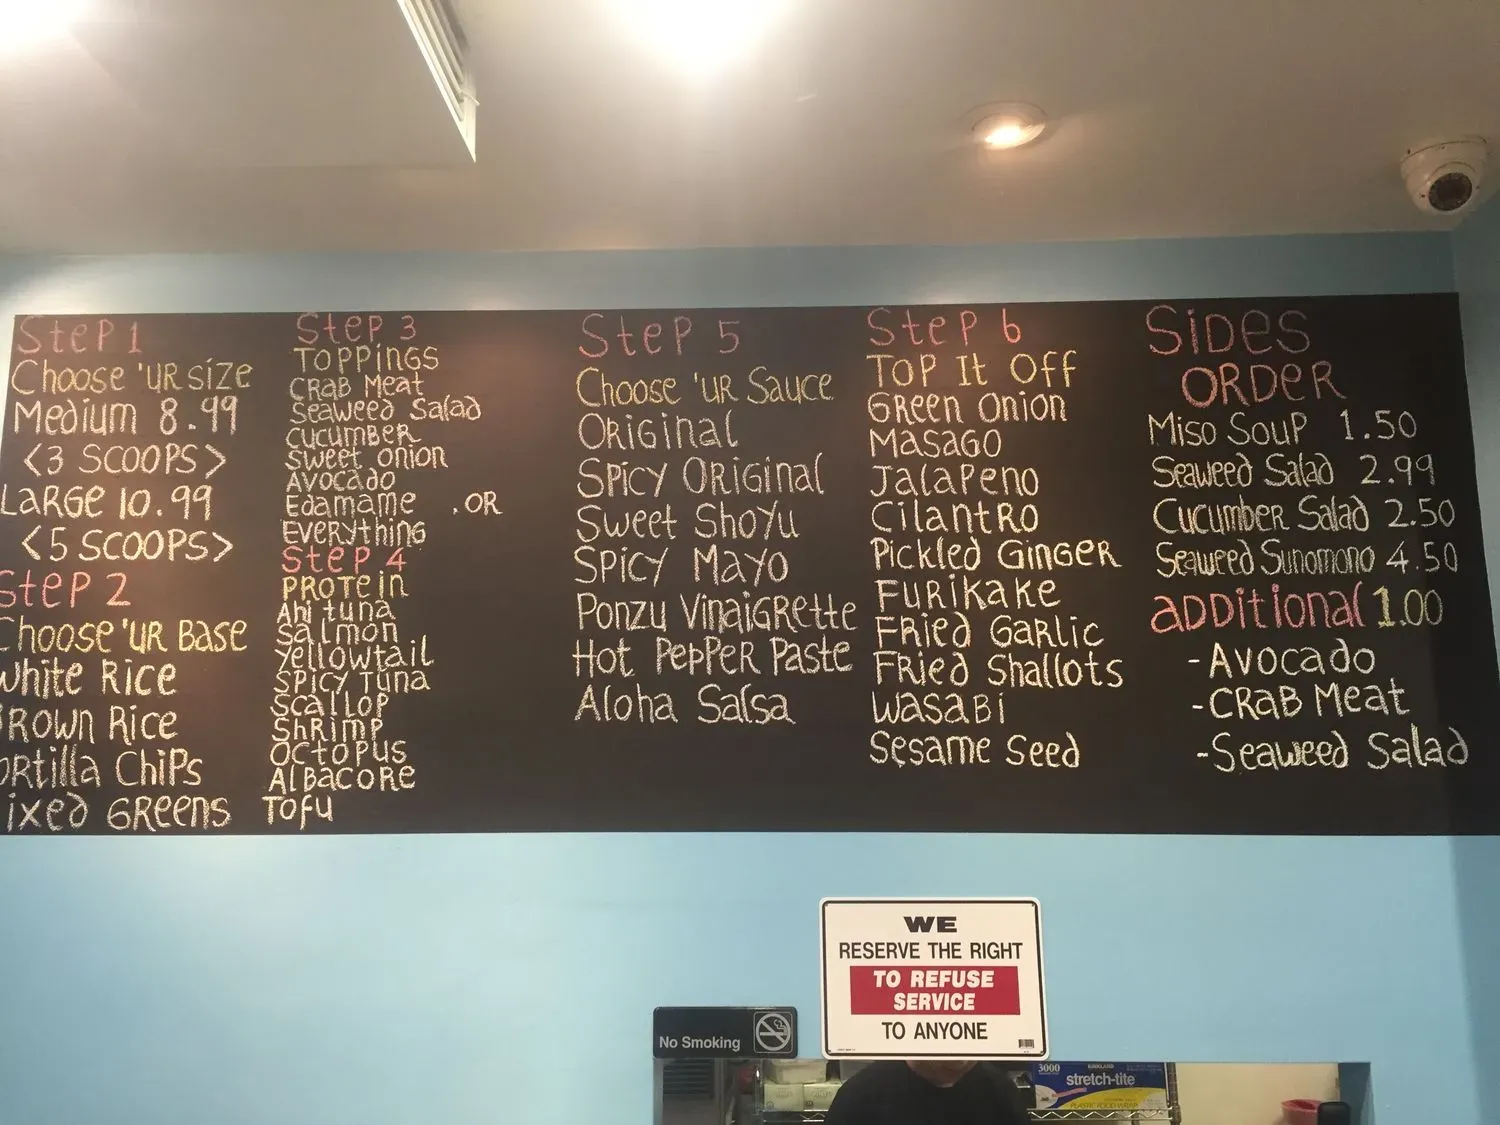 Step 1
Choose 'ur size
Medium 8.99
<3 scoops>
Large 10.99
<5 scoops>
Step 2
Choose 'ur Base
White Rice
Brown Rice
Tortilla Chips
Mixed Greens
Step 3
Toppings
Crab Meat
Seaweed Salad
Cucumber
Sweet Onion
Avocado
Edamame .OR
Everything
Step 4
Protein
Ahi tuna
Salmon
Yellowtail
Spicy Tuna
Scallop
Shrimp
Octopus
Albacore
Tofu
Step 5
Choose 'ur Sauce
Original
Spicy Original
Sweet Shoyu
Spicy Mayo
Ponzu Vinaigrette
Hot Pepper Paste
Aloha Salsa
Step 6
Top It Off
Green Onion
Masago
Jalapeno
Cilantro
Pickled Ginger
Furikake
Fried Garlic
Fried Shallots
Wasabi
Sesame Seed
Sides
Order
Miso Soup 1.50
Seaweed Salad 2.99
Cucumber Salad 2.50
Seaweed Sunomono 4.50
Additional 1.00
-Avocado
-Crab Meat
-Seaweed Salad
WE
RESERVE THE RIGHT
TO REFUSE
SERVICE
TO ANYONE
No Smoking
3000
KIRKLAND
stretch-tite
PLASTIC FOOD WRAP